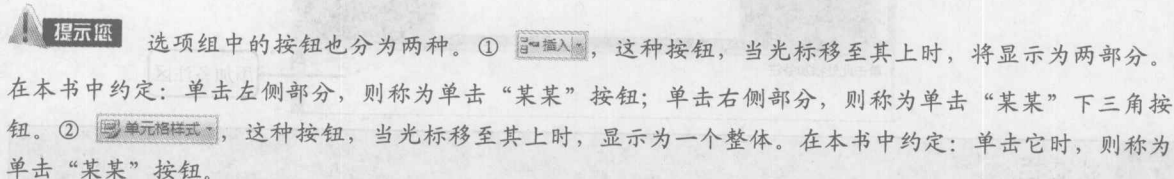 提示您 选项组中的按钮也分为两种。① 插入，这种按钮，当光标移至其上时，将显示为两部分。
在本书中约定：单击左侧部分，则称为单击“某某”按钮；单击右侧部分，则称为单击“某某”下三角按
钮。② 单元格样式，这种按钮，当光标移至其上时，显示为一个整体。在本书中约定：单击它时，则称为
单击“某某”按钮。